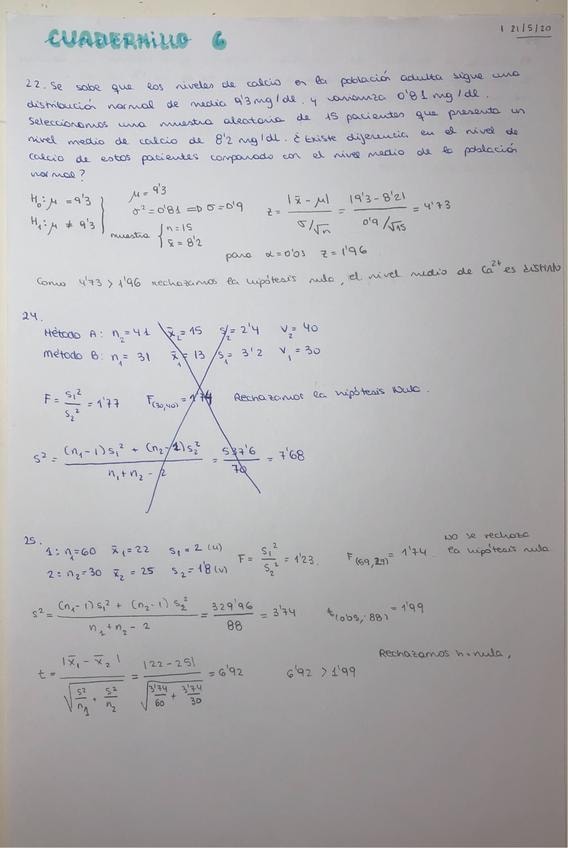 CUADERNILLO 6
1 21/5/20
22. Se sabe que los niveles de calcio en la población adulta sigue una
distribución normal de media 9'3 mg/dl. y varianza 0'81 mg/dl.
Seleccionamos una muestra aleatoria de 15 pacientes que presenta un
nivel medio de calcio de 8'2 mg/dl. ¿Existe diferencia en el nivel de
calcio de estos pacientes comparado con el nivel medio de la población
normal?
H₀: μ = 9'3
H₁: μ ≠ 9'3
μ = 9'3
σ² = 0'81 => σ = 0'9
muestra { n = 15
x̄ = 8'2
z = |x̄ - μ| / (σ/√n) = |9'3 - 8'2| / (0'9/√15) = 4'73
para α = 0'05 z = 1'96
Como 4'73 > 1'96 rechazamos la hipótesis nula, el nivel medio de Ca²⁺ es distinto
24.
Método A: n₂ = 41 x̄₂ = 15 s₂ = 2'4 v₂ = 40
Método B: n₁ = 31 x̄₁ = 13 s₁ = 3'2 v₁ = 30
F = s₁²/s₂² = 1'77 F(30,40) = 1'74 Rechazamos la hipótesis Nula.
s² = ((n₁-1)s₁² + (n₂-1)s₂²) / (n₁+n₂-2) = 537'6/70 = 7'68
25.
1: n₁=60 x̄₁ = 22 s₁ = 2 (u) F = s₁²/s₂² = 1'23. F(59,29) = 1'74 No se rechaza
2: n₂=30 x̄₂ = 25 s₂ = 1'8 (u) la hipótesis nula
s² = ((n₁-1)s₁² + (n₂-1)s₂²) / (n₁+n₂-2) = 329'96/88 = 3'74 t(0'05, 88) = 1'99
t = |x̄₁ - x̄₂| / √(s²/n₁ + s²/n₂) = |22-25| / √(3'74/60 + 3'74/30) = 6'92 6'92 > 1'99
Rechazamos h. nula,